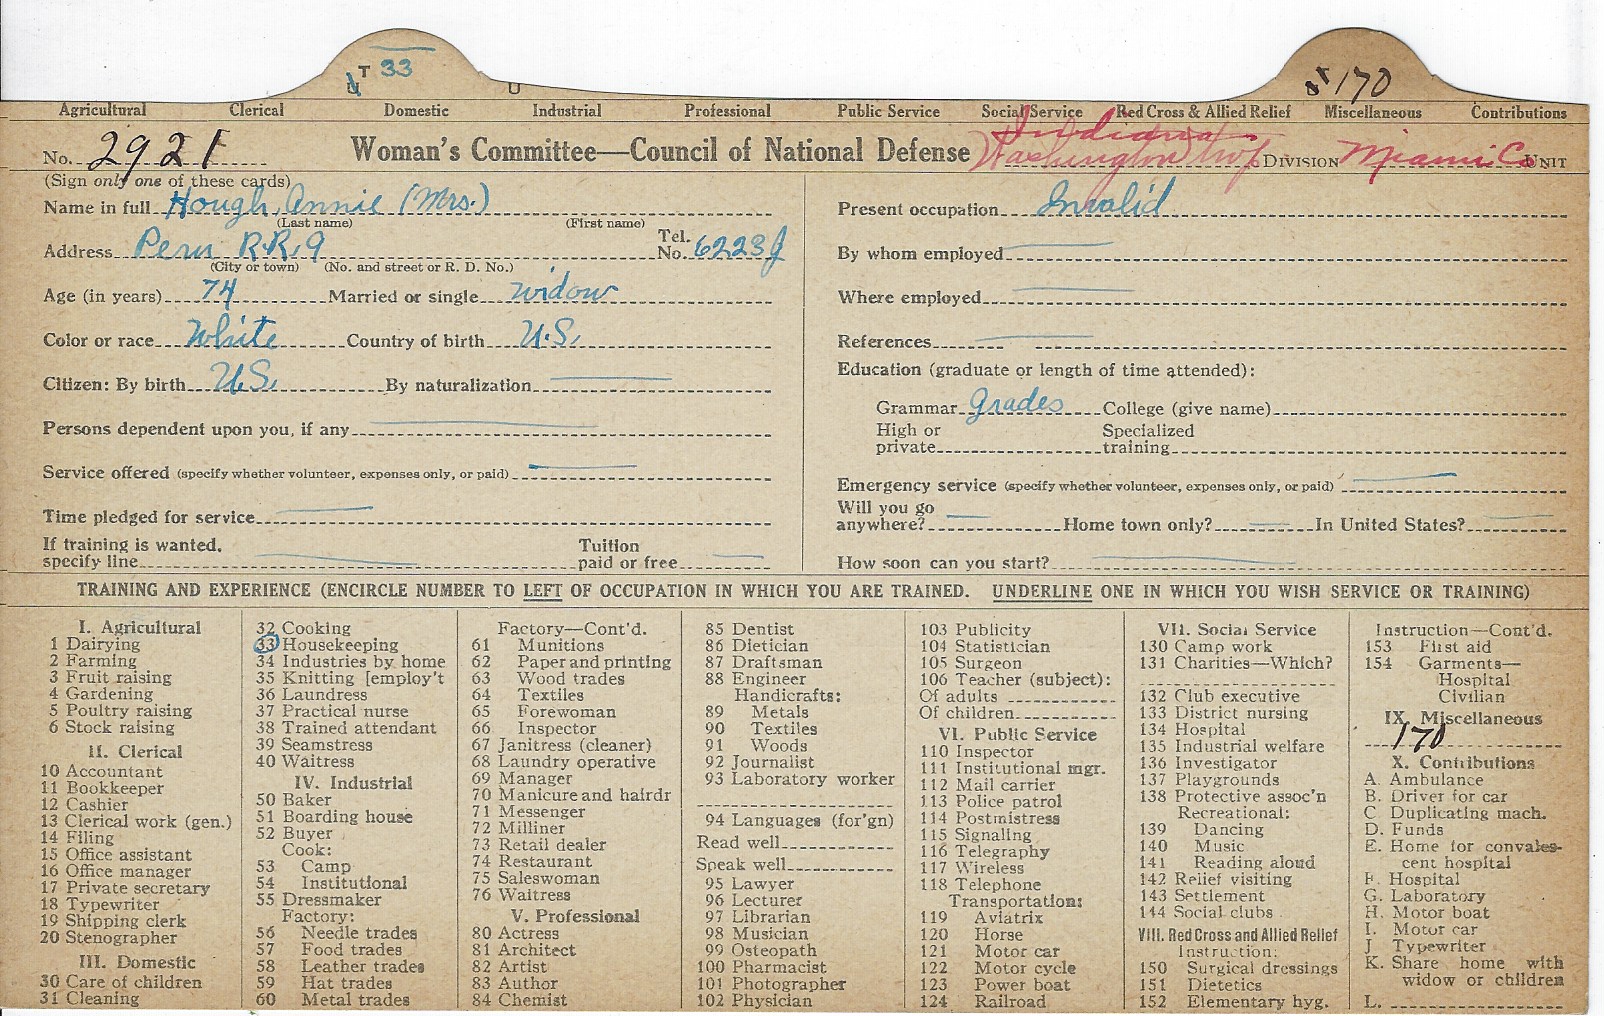 T 33
U
170
Agricultural Clerical Domestic Industrial Professional Public Service Social Service Red Cross & Allied Relief Miscellaneous Contributions
No. 2921 Woman's Committee—Council of National Defense Indiana Washington Twp DIVISION Miami Co UNIT
(Sign only one of these cards)
Name in full Hough, Annie (Mrs.)
(Last name) (First name)
Address Peru R.R. 9 Tel. No. 6223J
(City or town) (No. and street or R. D. No.)
Age (in years) 74 Married or single Widow
Color or race White Country of birth U.S.
Citizen: By birth U.S. By naturalization
Persons dependent upon you, if any
Service offered (specify whether volunteer, expenses only, or paid)
Time pledged for service
If training is wanted, specify line Tuition paid or free
Present occupation Invalid
By whom employed
Where employed
References
Education (graduate or length of time attended):
Grammar Grades College (give name)
High or private Specialized training
Emergency service (specify whether volunteer, expenses only, or paid)
Will you go anywhere? Home town only? In United States?
How soon can you start?
TRAINING AND EXPERIENCE (ENCIRCLE NUMBER TO LEFT OF OCCUPATION IN WHICH YOU ARE TRAINED. UNDERLINE ONE IN WHICH YOU WISH SERVICE OR TRAINING)
I. Agricultural
1 Dairying
2 Farming
3 Fruit raising
4 Gardening
5 Poultry raising
6 Stock raising
II. Clerical
10 Accountant
11 Bookkeeper
12 Cashier
13 Clerical work (gen.)
14 Filing
15 Office assistant
16 Office manager
17 Private secretary
18 Typewriter
19 Shipping clerk
20 Stenographer
III. Domestic
30 Care of children
31 Cleaning
32 Cooking
33 Housekeeping
34 Industries by home
35 Knitting [employ't
36 Laundress
37 Practical nurse
38 Trained attendant
39 Seamstress
40 Waitress
IV. Industrial
50 Baker
51 Boarding house
52 Buyer
Cook:
53 Camp
54 Institutional
55 Dressmaker
Factory:
56 Needle trades
57 Food trades
58 Leather trades
59 Hat trades
60 Metal trades
Factory—Cont'd.
61 Munitions
62 Paper and printing
63 Wood trades
64 Textiles
65 Forewoman
66 Inspector
67 Janitress (cleaner)
68 Laundry operative
69 Manager
70 Manicure and hairdr
71 Messenger
72 Milliner
73 Retail dealer
74 Restaurant
75 Saleswoman
76 Waitress
V. Professional
80 Actress
81 Architect
82 Artist
83 Author
84 Chemist
85 Dentist
86 Dietician
87 Draftsman
88 Engineer
Handicrafts:
89 Metals
90 Textiles
91 Woods
92 Journalist
93 Laboratory worker
94 Languages (for'gn)
Read well
Speak well
95 Lawyer
96 Lecturer
97 Librarian
98 Musician
99 Osteopath
100 Pharmacist
101 Photographer
102 Physician
103 Publicity
104 Statistician
105 Surgeon
106 Teacher (subject):
Of adults
Of children
VI. Public Service
110 Inspector
111 Institutional mgr.
112 Mail carrier
113 Police patrol
114 Postmistress
115 Signaling
116 Telegraphy
117 Wireless
118 Telephone
Transportation:
119 Aviatrix
120 Horse
121 Motor car
122 Motor cycle
123 Power boat
124 Railroad
VII. Social Service
130 Camp work
131 Charities—Which?
132 Club executive
133 District nursing
134 Hospital
135 Industrial welfare
136 Investigator
137 Playgrounds
138 Protective assoc'n
Recreational:
139 Dancing
140 Music
141 Reading aloud
142 Relief visiting
143 Settlement
144 Social clubs
VIII. Red Cross and Allied Relief
Instruction:
150 Surgical dressings
151 Dietetics
152 Elementary hyg.
Instruction—Cont'd.
153 First aid
154 Garments—
Hospital
Civilian
IX. Miscellaneous
170
X. Contributions
A. Ambulance
B. Driver for car
C Duplicating mach.
D. Funds
E. Home for convales-
cent hospital
F. Hospital
G. Laboratory
H. Motor boat
I. Motor car
J Typewriter
K. Share home with
widow or children
L.